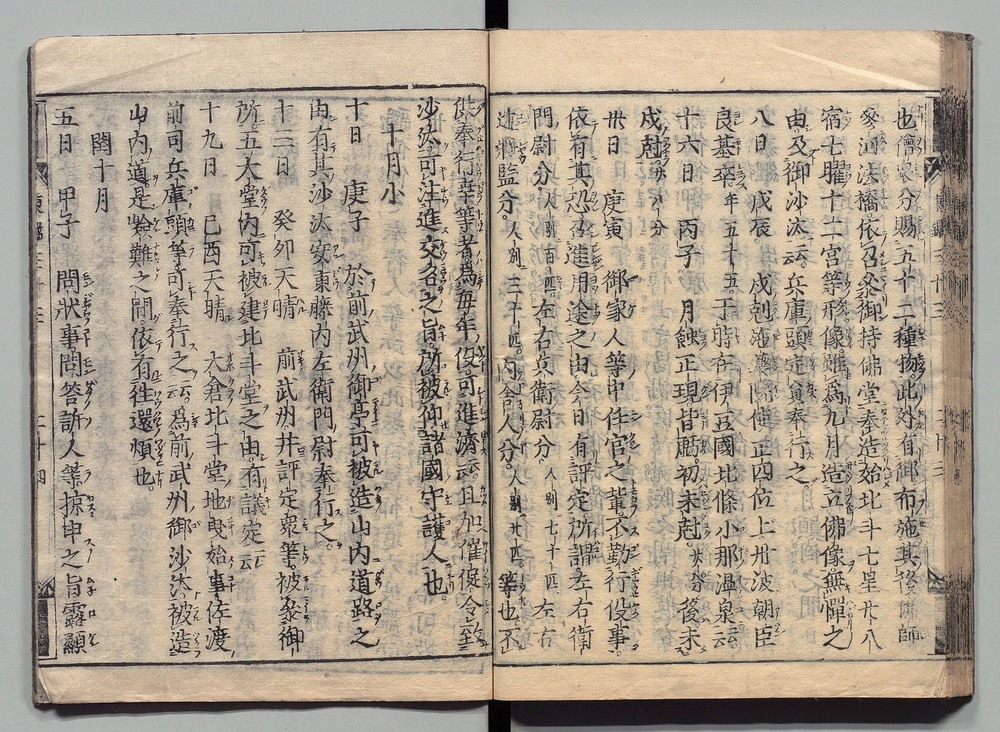 也僧衆分賜五十二種物此外有御布施其後佛師
参河法橋依召参御持佛堂奉造始北斗七星廿八
宿七曜十二宮等形像雖爲九月造立佛像無憚之
由及御沙汰云云兵庫頭定員奉行之
八日 戊辰 戌刻 正四位上丹波朝臣
良基卒年五十五于時在伊豆國北條小那温泉云云
十六日 丙子 月蝕正現皆虧初未尅 分後未
戌尅 分
廿日 庚寅 御家人等中任官之輩不勤行役事
依有其恐召進用途之由今日有評定所謂左右衛
門尉分人別百匹左右兵衛尉分人別七十匹左右
近將監分人別三十匹内舎人分人別廿匹等也不
供奉行幸等者爲毎年役可進濟云云且加催促令致
沙汰可注進交名之旨所被仰諸國守護人也
十月小
十日 庚子 於前武州御亭可被造山内道路之
由有其沙汰安東藤内左衛門尉奉行之
十三日 癸卯天晴 前武州并評定衆等被參御
所五大堂内可被建北斗堂之由有議定云云
十九日 己酉天晴 大倉北斗堂地曳始事佐渡
前司兵庫頭等奉行之云云爲前武州御沙汰被造
山内道是嶮難之間依有往還煩也
閏十月
五日 甲子 問状事問答訴人等掠申之旨露顯